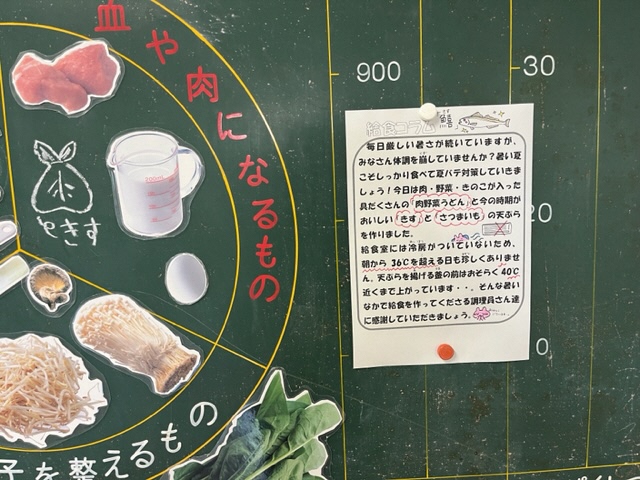 血や肉になるもの
水
きす
子を整えるもの
900
30
20
0
給食コラム
毎日厳しい暑さが続いていますが、
みなさん体調を崩していませんか?暑い夏
こそしっかり食べて夏バテ対策していきま
しょう!今日は肉・野菜・きのこが入った
具だくさんの「肉野菜うどん」と今の時期が
おいしい「きす」と「さつまいも」の天ぷら
を作りました。
給食室には冷房がついていないため、
朝から36℃を超える日も珍しくありませ
ん。天ぷらを揚げる釜の前はおそらく40℃
近くまで上がっています・・。そんな暑い
なかで給食を作ってくださる調理員さん達
に感謝していただきましょう。